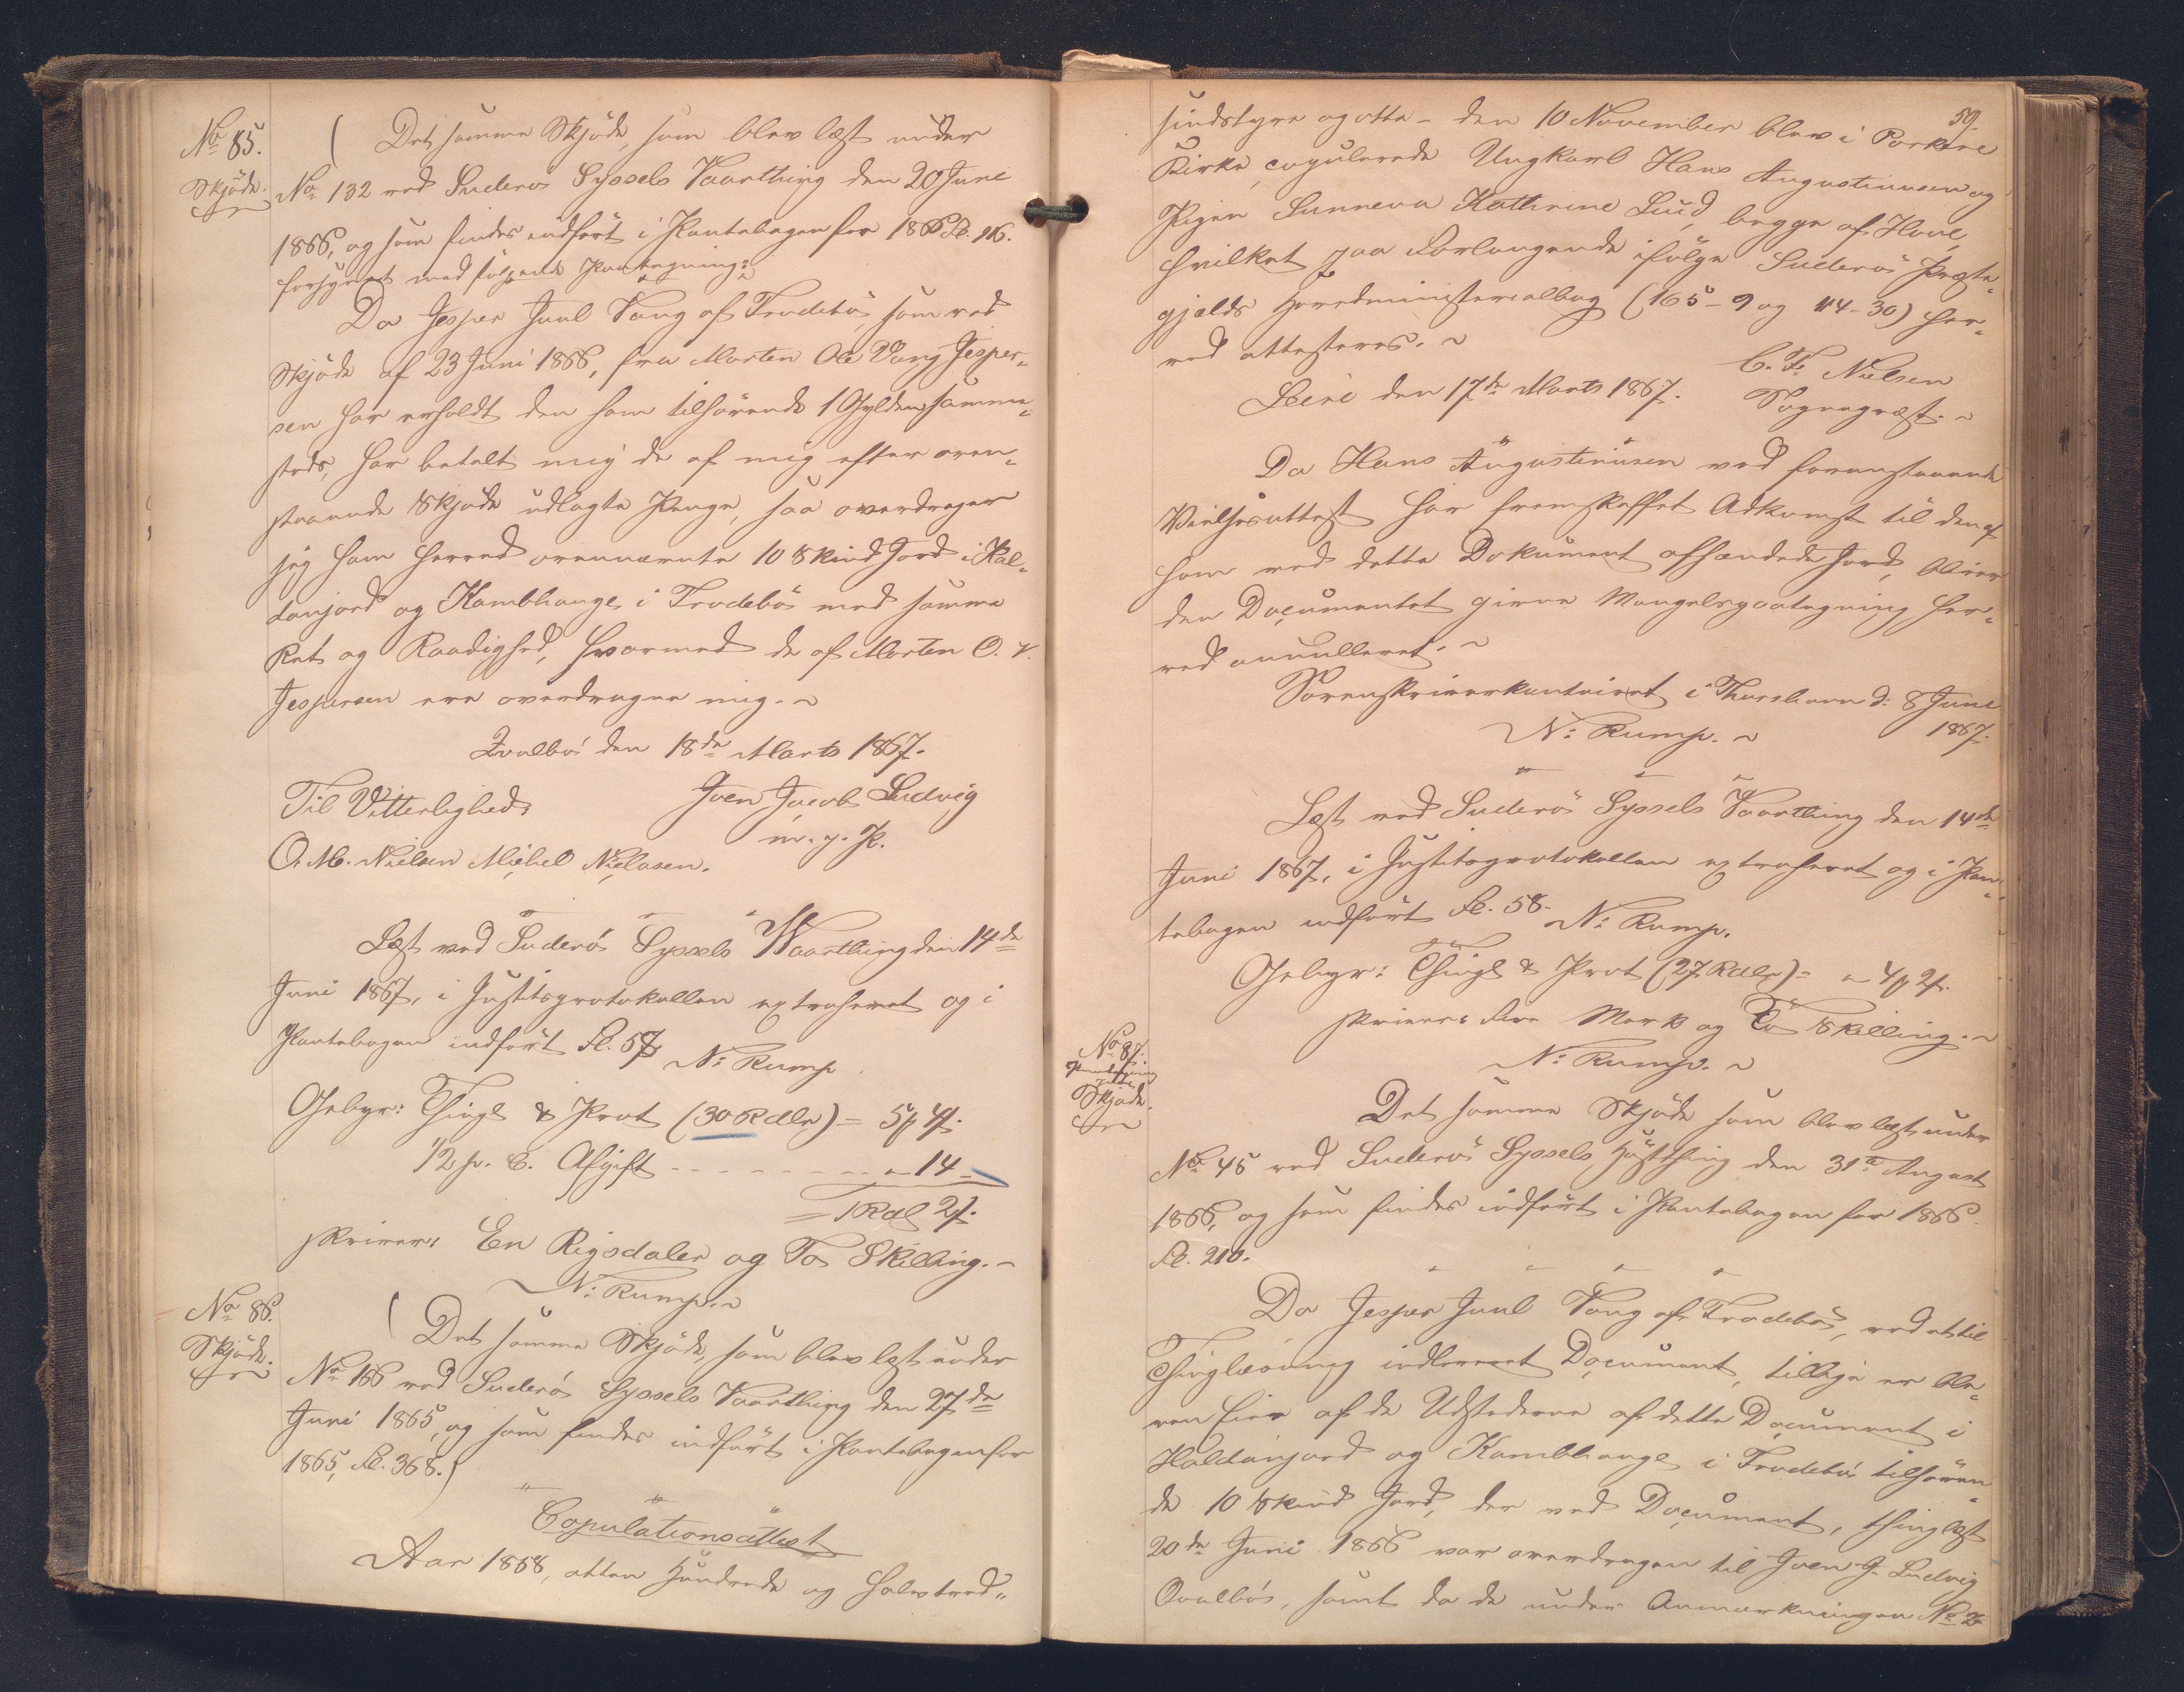 No 85.
Skjöde.
( Det samme Skjöde, som blev læst under
No 132 ved Suderös Syssels Vaarthing den 20 Juni
1866, og som findes indført i Pantebogen for 1866 Fl. 116.
forsynet med følgende Paategning:
Da Jesper Juul Vang af Frodebö, som ved
Skjöde af 23 Juni 1866, fra Morten Ole Vang Jesper-
sen har erholdt den ham tilhørende 1 Gylden samme-
steds, har betalt mig de af mig efter oven-
staaende Skjöde udlagte Penge, saa overdrager
jeg ham herved ovennævnte 10 Skind Jord i Hal-
danjord og Kambhauge i Frodebö med samme
Ret og Raadighed, hvormed de af Morten O. V.
Jespersen ere overdragne mig.
Qvalbö den 18de Marts 1867.
Til Vitterlighed: Joen Jacob Ludvig
O. M. Nielsen Michel Nielasen. m. p. P.
Læst ved Suderö Syssels Vaarthing den 14de
Juni 1867, i Justitsprotokollen extraheret og i
Pantebogen indført Fl. 57. N: Rump
Gebyr: Thingl & Prot (30 Rdlr) = 5 4
1/2 p. C. Afgift - - - - - - - - 14 -
= 1 Rdl 2
skriver: En Rigsdaler og To Skilling.
N: Rump.
No 86.
Skjöde.
( Det samme Skjöde, som blev læst under
No 166 ved Suderö Syssels Vaarthing den 27de
Juni 1865, og som findes indført i Pantebogen for
1865, Fl. 368.)
Copulationsattest
Aar 1858, atten Hundrede og halvtred-
59.
sindstyve og otte - den 10 November blev i Porkere
Kirke, copulerede Ungkarl Hans Augustinusen og
Pigen Sunneva Kathrine Lud, begge af Hove,
hvilket paa Forlangende ifölge Suderös Præste-
gjelds Hovedministerialbog (165-9 og 114-30) her-
ved attesteres.
C. F. Nielsen
Sogneprest.
den 17de Marts 1867.
Da Hans Augustinusen ved foranstaaende
Vielsesattest har fremskaffet Adkomst til den af
ham ved dette Dokument afhændede Jord, bliver
den Documentet givne Mangelspaategning her-
ved annulleret.
Sorenskriverkontoiret i Thorshavn d: 8 Juni
1867.
N: Rump.
Læst ved Suderö Syssels Vaarthing den 14de
Juni 1867, i Justitsprotokollen extraheret og i Pan-
tebogen indført Fl. 58. N: Rump.
Gebyr: Thingl & Prot (27 Rdlr) = 4 2
skriver: Fire Mark og To Skilling.
N: Rump.
No 87.
Paategning
Skjöde.
Det samme Skjöde som blev læst under
No 45 ved Suderö Syssels Høstthing den 31te August
1866, og som findes indført i Pantebogen for 1866
Fl. 210.
Da Jesper Juul Vang af Frodebö, ved et til
Thinglæsning indleveret Document, tillige er ble-
ven Eier af de Udstederne af dette Document i
Haldanjord og Kambhauge i Frodebö tilhøren-
de 10 Skind Jord, der ved Document, thinglæst
20de Juni 1866 var overdragen til Joen J. Ludvig
Qvalbö, samt da de under Anmærkningen No 2